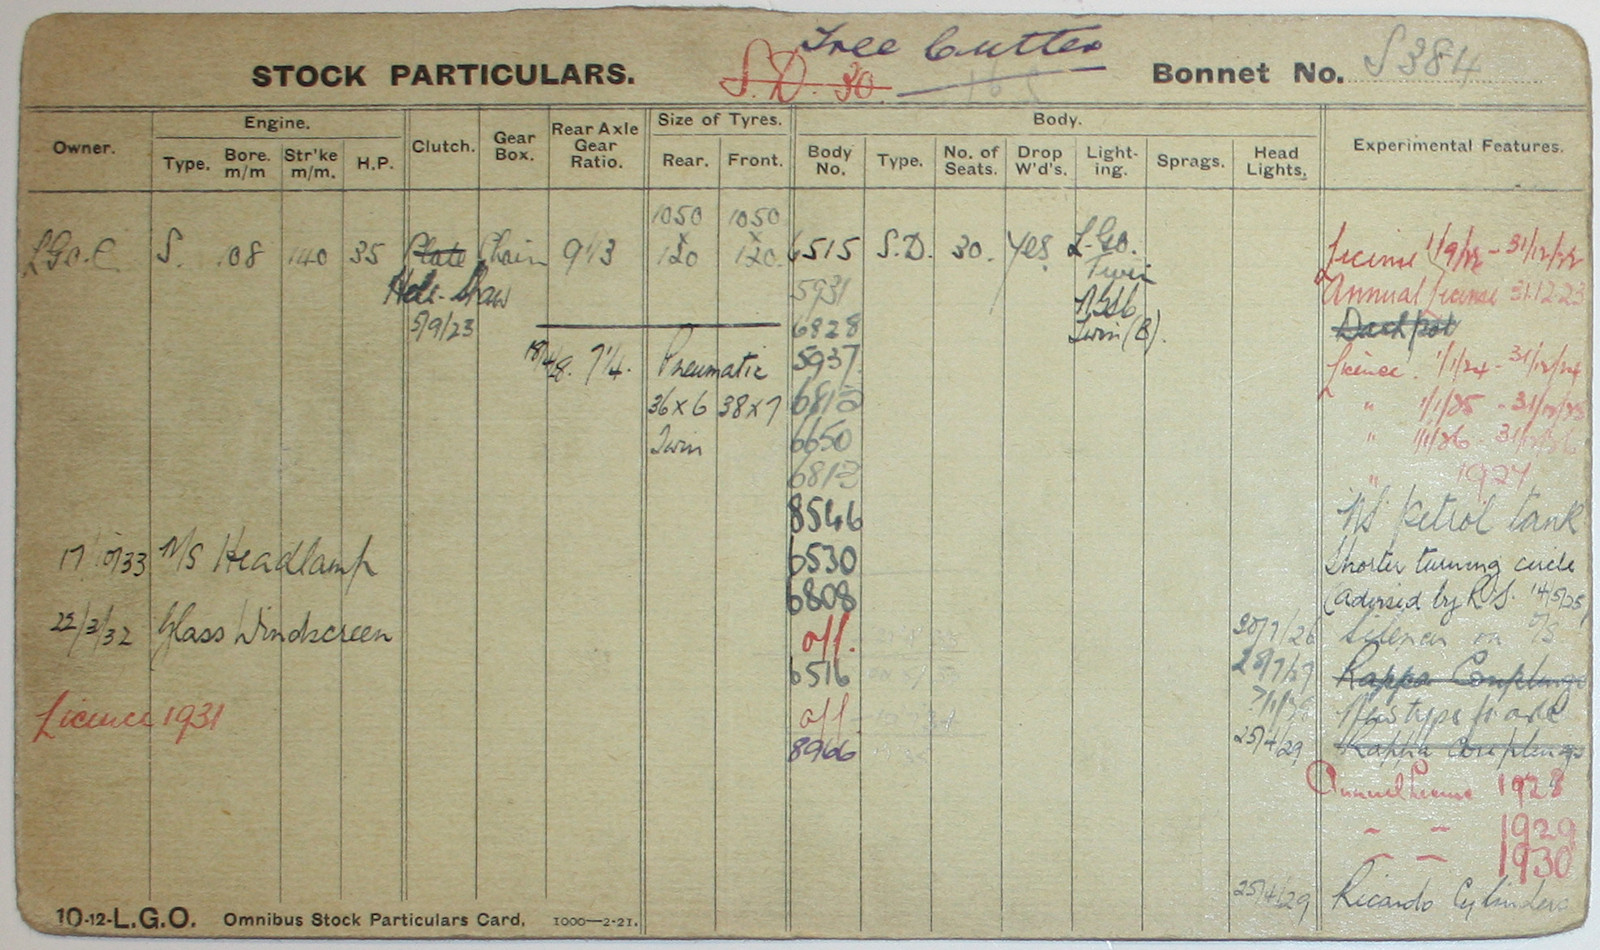 Tree Cutter
STOCK PARTICULARS. S.D. 30. Bonnet No. S384
Owner. Engine. Clutch. Gear Box. Rear Axle Gear Ratio. Size of Tyres. Body. Experimental Features.
Type. Bore. m/m Str'ke m/m. H.P. Rear. Front. Body No. Type. No. of Seats. Drop W'd's. Light-ing. Sprags. Head Lights.
1050 1050
L.G.O.C. S. 108 140 35 Plate Chain 9⅓ x 120 x 120. 6515 S.D. 30. Yes L.G.O. Licence 1/9/22 - 31/12/22
Hele-Shaw 5931 Twin Annual Licence 31.12.23
5/9/23 6828 Twin (B). Dashpot
7¼. Pneumatic 5937 Licence. 1/1/24 - 31/12/24
36 x 6 38 x 7 6813 " 1/1/25 - 31/12/25
Twin 6650 " 1/1/26 - 31/12/26
6813 " 1927
8546 N/S petrol tank
17/10/33 N/S Headlamp 6530 Shorter turning circle
6808 (advised by R.S. 14/5/25)
22/3/32 Glass Windscreen off. 20/7/26 Silencer on O/S
6516 25/7/27 Kappa Couplings
Licence 1931 off
8966 25/4/29 Kappa Couplings
Annual Licence 1928
" " 1929
" " 1930
25/4/29 Ricardo Cylinders
10-12-L.G.O. Omnibus Stock Particulars Card. 1000—2-21.